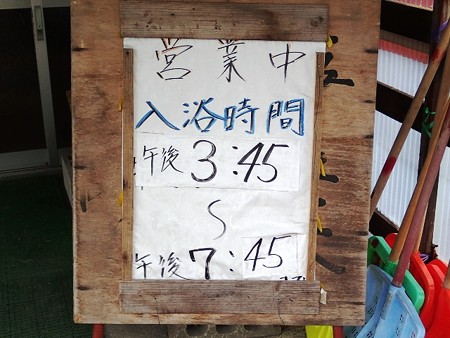 営業中
入浴時間
午後3:45
〜
午後7:45